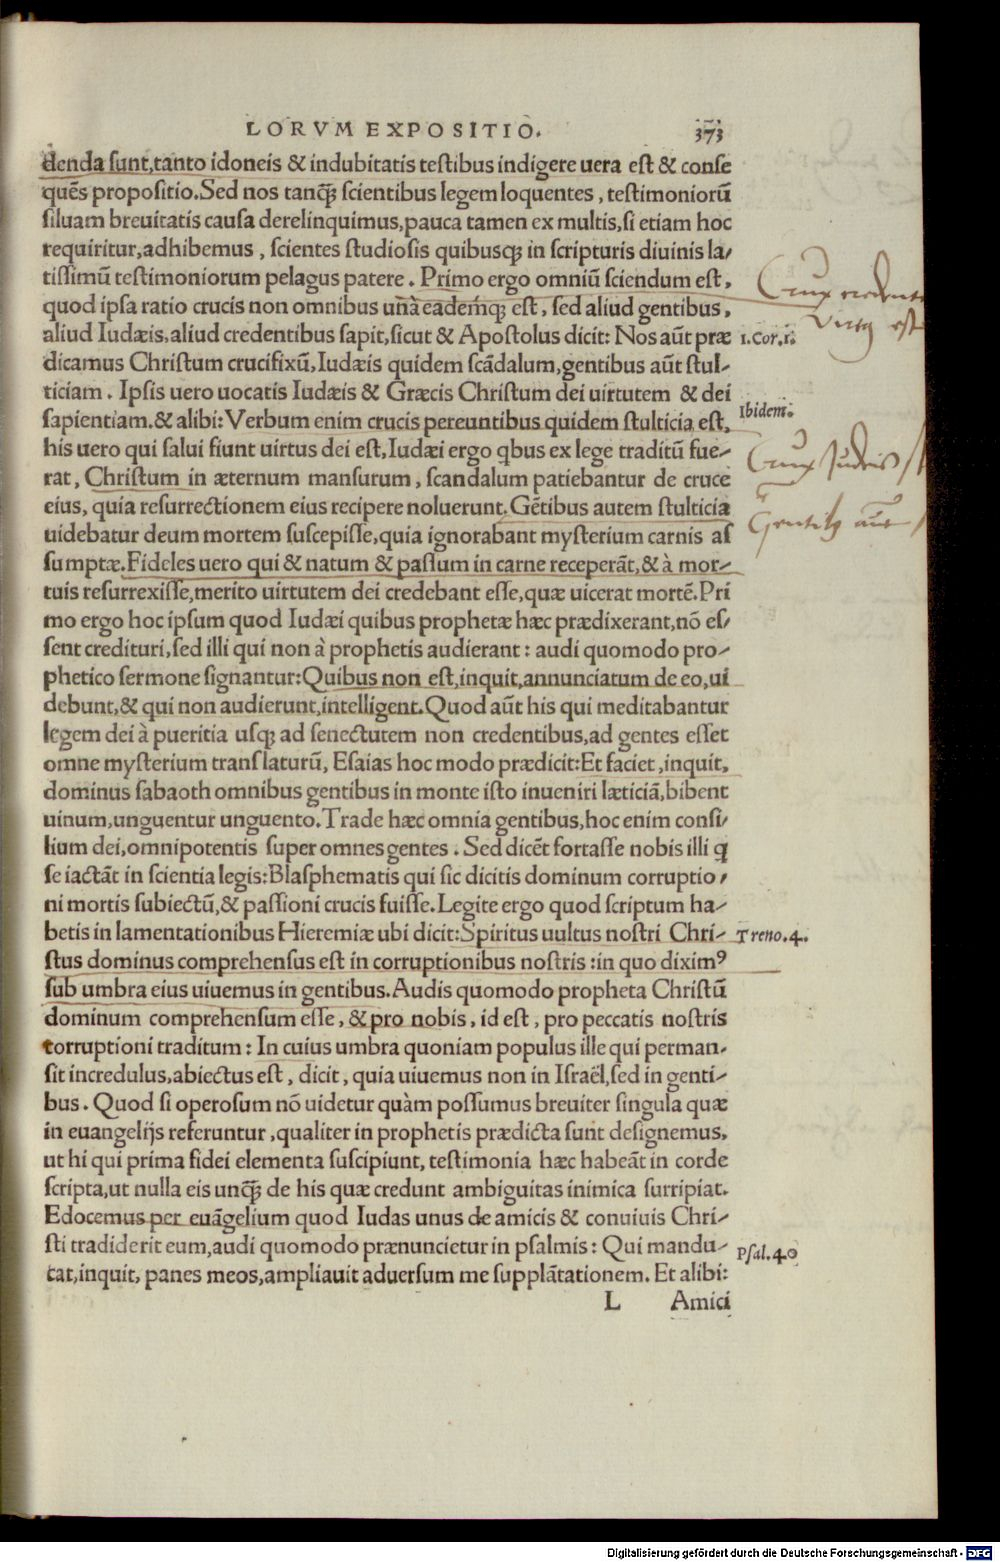 LORVM EXPOSITIO. 373
denda sunt,tanto idoneis & indubitatis testibus indigere uera est & conse
quēs propositio.Sed nos tanq̃ꝫ scientibus legem loquentes, testimoniorū
siluam breuitatis causa derelinquimus,pauca tamen ex multis,si etiam hoc
requiritur,adhibemus, scientes studiosis quibusqꝫ in scripturis diuinis la-
tissimū testimoniorum pelagus patere. Primo ergo omniū sciendum est,
Crux credenti
quod ipsa ratio crucis non omnibus una eademqꝫ est, sed aliud gentibus,
Virtꝰ est
aliud Iudæis,aliud credentibus sapit,sicut & Apostolus dicit: Nos aūt præ 1.Cor.1.
dicamus Christum crucifixū,Iudæis quidem scādalum,gentibus aūt stul-
ticiam. Ipsis uero uocatis Iudæis & Græcis Christum dei uirtutem & dei
sapientiam.& alibi: Verbum enim crucis pereuntibus quidem stulticia est, Ibidem.
his uero qui salui fiunt uirtus dei est,Iudæi ergo q̄bus ex lege traditū fue-
Crux Iudeis
rat, Christum in æternum mansurum, scandalum patiebantur de cruce
eius, quia resurrectionem eius recipere noluerunt. Gētibus autem stulticia
Gentibꝫ aūt
uidebatur deum mortem suscepisse,quia ignorabant mysterium carnis as
sumptæ.Fideles uero qui & natum & passum in carne receperāt,& à mor-
tuis resurrexisse,merito uirtutem dei credebant esse,quæ uicerat mortē.Pri
mo ergo hoc ipsum quod Iudæi quibus prophetæ hæc prædixerant,nō es-
sent credituri,sed illi qui non à prophetis audierant: audi quomodo pro-
phetico sermone signantur:Quibus non est,inquit,annunciatum de eo,ui
debunt,& qui non audierunt,intelligent.Quod aūt his qui meditabantur
legem dei à pueritia usqꝫ ad senectutem non credentibus,ad gentes esset
omne mysterium translaturū, Esaias hoc modo prædicit:Et faciet,inquit,
dominus sabaoth omnibus gentibus in monte isto inueniri læticiā,bibent
uinum,unguentur unguento.Trade hæc omnia gentibus,hoc enim consi-
lium dei,omnipotentis super omnes gentes. Sed dicēt fortasse nobis illi q̄
se iactāt in scientia legis:Blasphematis qui sic dicitis dominum corruptio-
ni mortis subiectū,& passioni crucis fuisse.Legite ergo quod scriptum ha-
betis in lamentationibus Hieremiæ ubi dicit:Spiritus uultus nostri Chri- Treno.4.
stus dominus comprehensus est in corruptionibus nostris:in quo diximꝰ
sub umbra eius uiuemus in gentibus.Audis quomodo propheta Christū
dominum comprehensum esse, & pro nobis, id est, pro peccatis nostris
corruptioni traditum: In cuius umbra quoniam populus ille qui perman-
sit incredulus,abiectus est, dicit, quia uiuemus non in Israël,sed in genti-
bus. Quod si operosum nō uidetur quàm possumus breuiter singula quæ
in euangelijs referuntur,qualiter in prophetis prædicta sunt designemus,
ut hi qui prima fidei elementa suscipiunt, testimonia hæc habeāt in corde
scripta,ut nulla eis unq̃ꝫ de his quæ credunt ambiguitas inimica surripiat.
Edocemus per euāgelium quod Iudas unus de amicis & conuiuis Chri-
sti tradiderit eum,audi quomodo prænuncietur in psalmis: Qui mandu- Psal.40
cat,inquit, panes meos,ampliauit aduersum me supplātationem. Et alibi:
L Amici
Digitalisierung gefördert durch die Deutsche Forschungsgemeinschaft - DFG